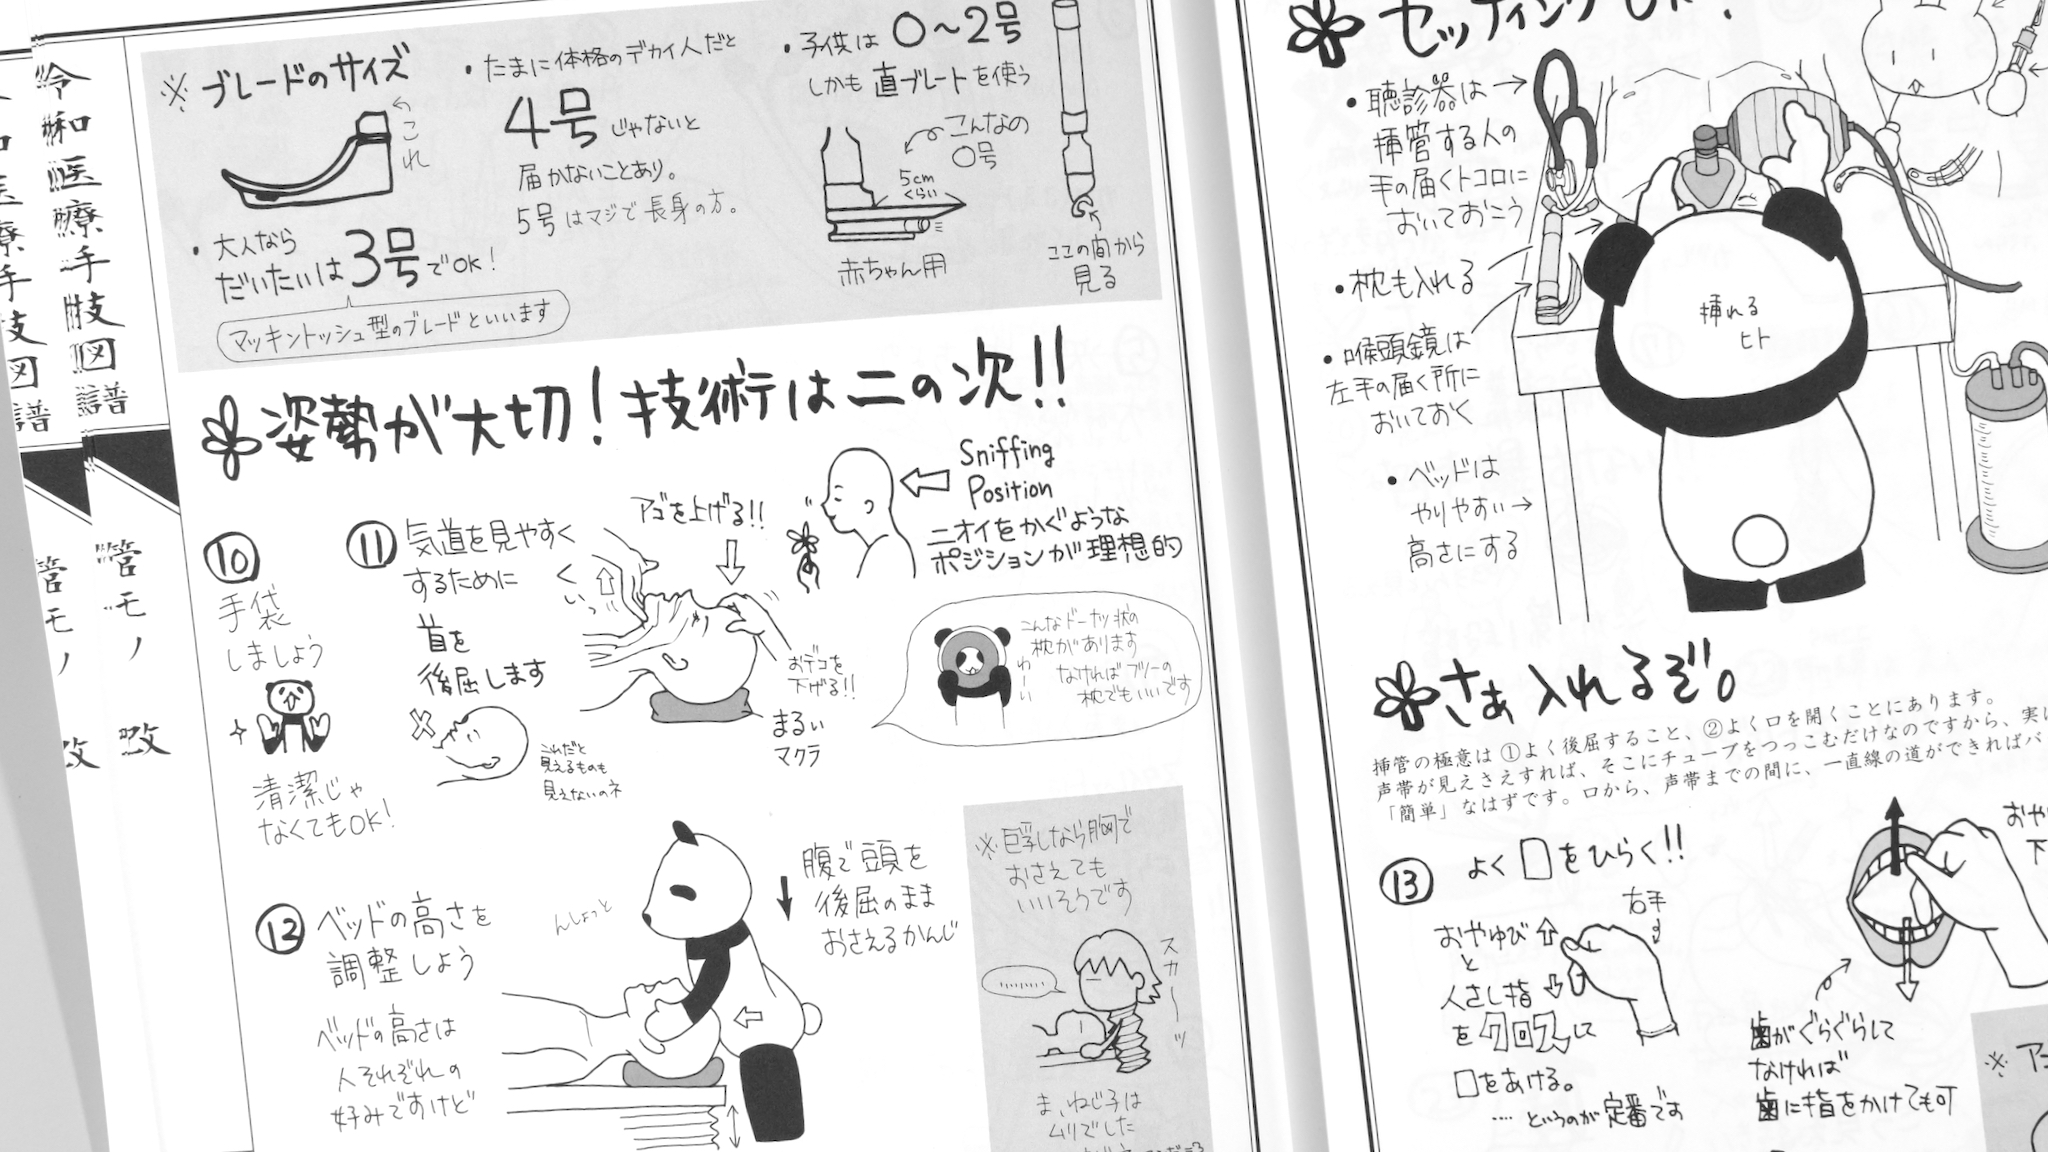 令和医療手技図譜
管モノ 改
令和医療手技図譜
管モノ 改
※ ブレードのサイズ
←これ
・大人なら
だいたいは 3号 でOK!
マッキントッシュ型のブレードといいます
・たまに体格のデカイ人だと
4号 じゃないと
届かないことあり。
5号はマジで長身の方。
・子供は 0〜2号
しかも 直ブレートを使う
こんなの
0号
5cm
くらい
赤ちゃん用
ここの間から
見る
姿勢が大切!技術は二の次!!
⑩
手袋
しましょう
清潔じゃ
なくてもOK!
⑪ 気道を見やすく
するために
首を
後屈します
これだと
見えるものも
見えないのネ
アゴを上げる!!
くいっ
おデコを
下げる!!
まるい
マクラ
Sniffing
Position
ニオイをかぐような
ポジションが理想的
こんなドーナツ状の
枕があります
なければフツーの
枕でもいいです
わーい
⑫ ベッドの高さを
調整しよう
ベッドの高さは
人それぞれの
好みですけど
んしょっと
腹で頭を
後屈のまま
おさえるかんじ
※巨乳しなら胸で
おさえても
いいそうです
スカーッ
ま、ねじ子は
ムリでした
セッティングOK!
・聴診器は→
挿管する人の
手の届くトコロに
おいておこう
・枕も入れる
・喉頭鏡は
左手の届く所に
おいておく
・ベッドは
やりやすい→
高さにする
挿れる
ヒト
さぁ入れるぞ。
挿管の極意は①よく後屈すること、②よく口を開くことにあります。
声帯が見えさえすれば、そこにチューブをつっこむだけなのですから、実に
「簡単」なはずです。口から、声帯までの間に、一直線の道ができればバ
⑬ よく口をひらく!!
おやゆび
と
人さし指
をクロスして
口をあける。
…. というのが定番です
右手
おや
下
歯がぐらぐらして
なければ
歯に指をかけても可
※ア